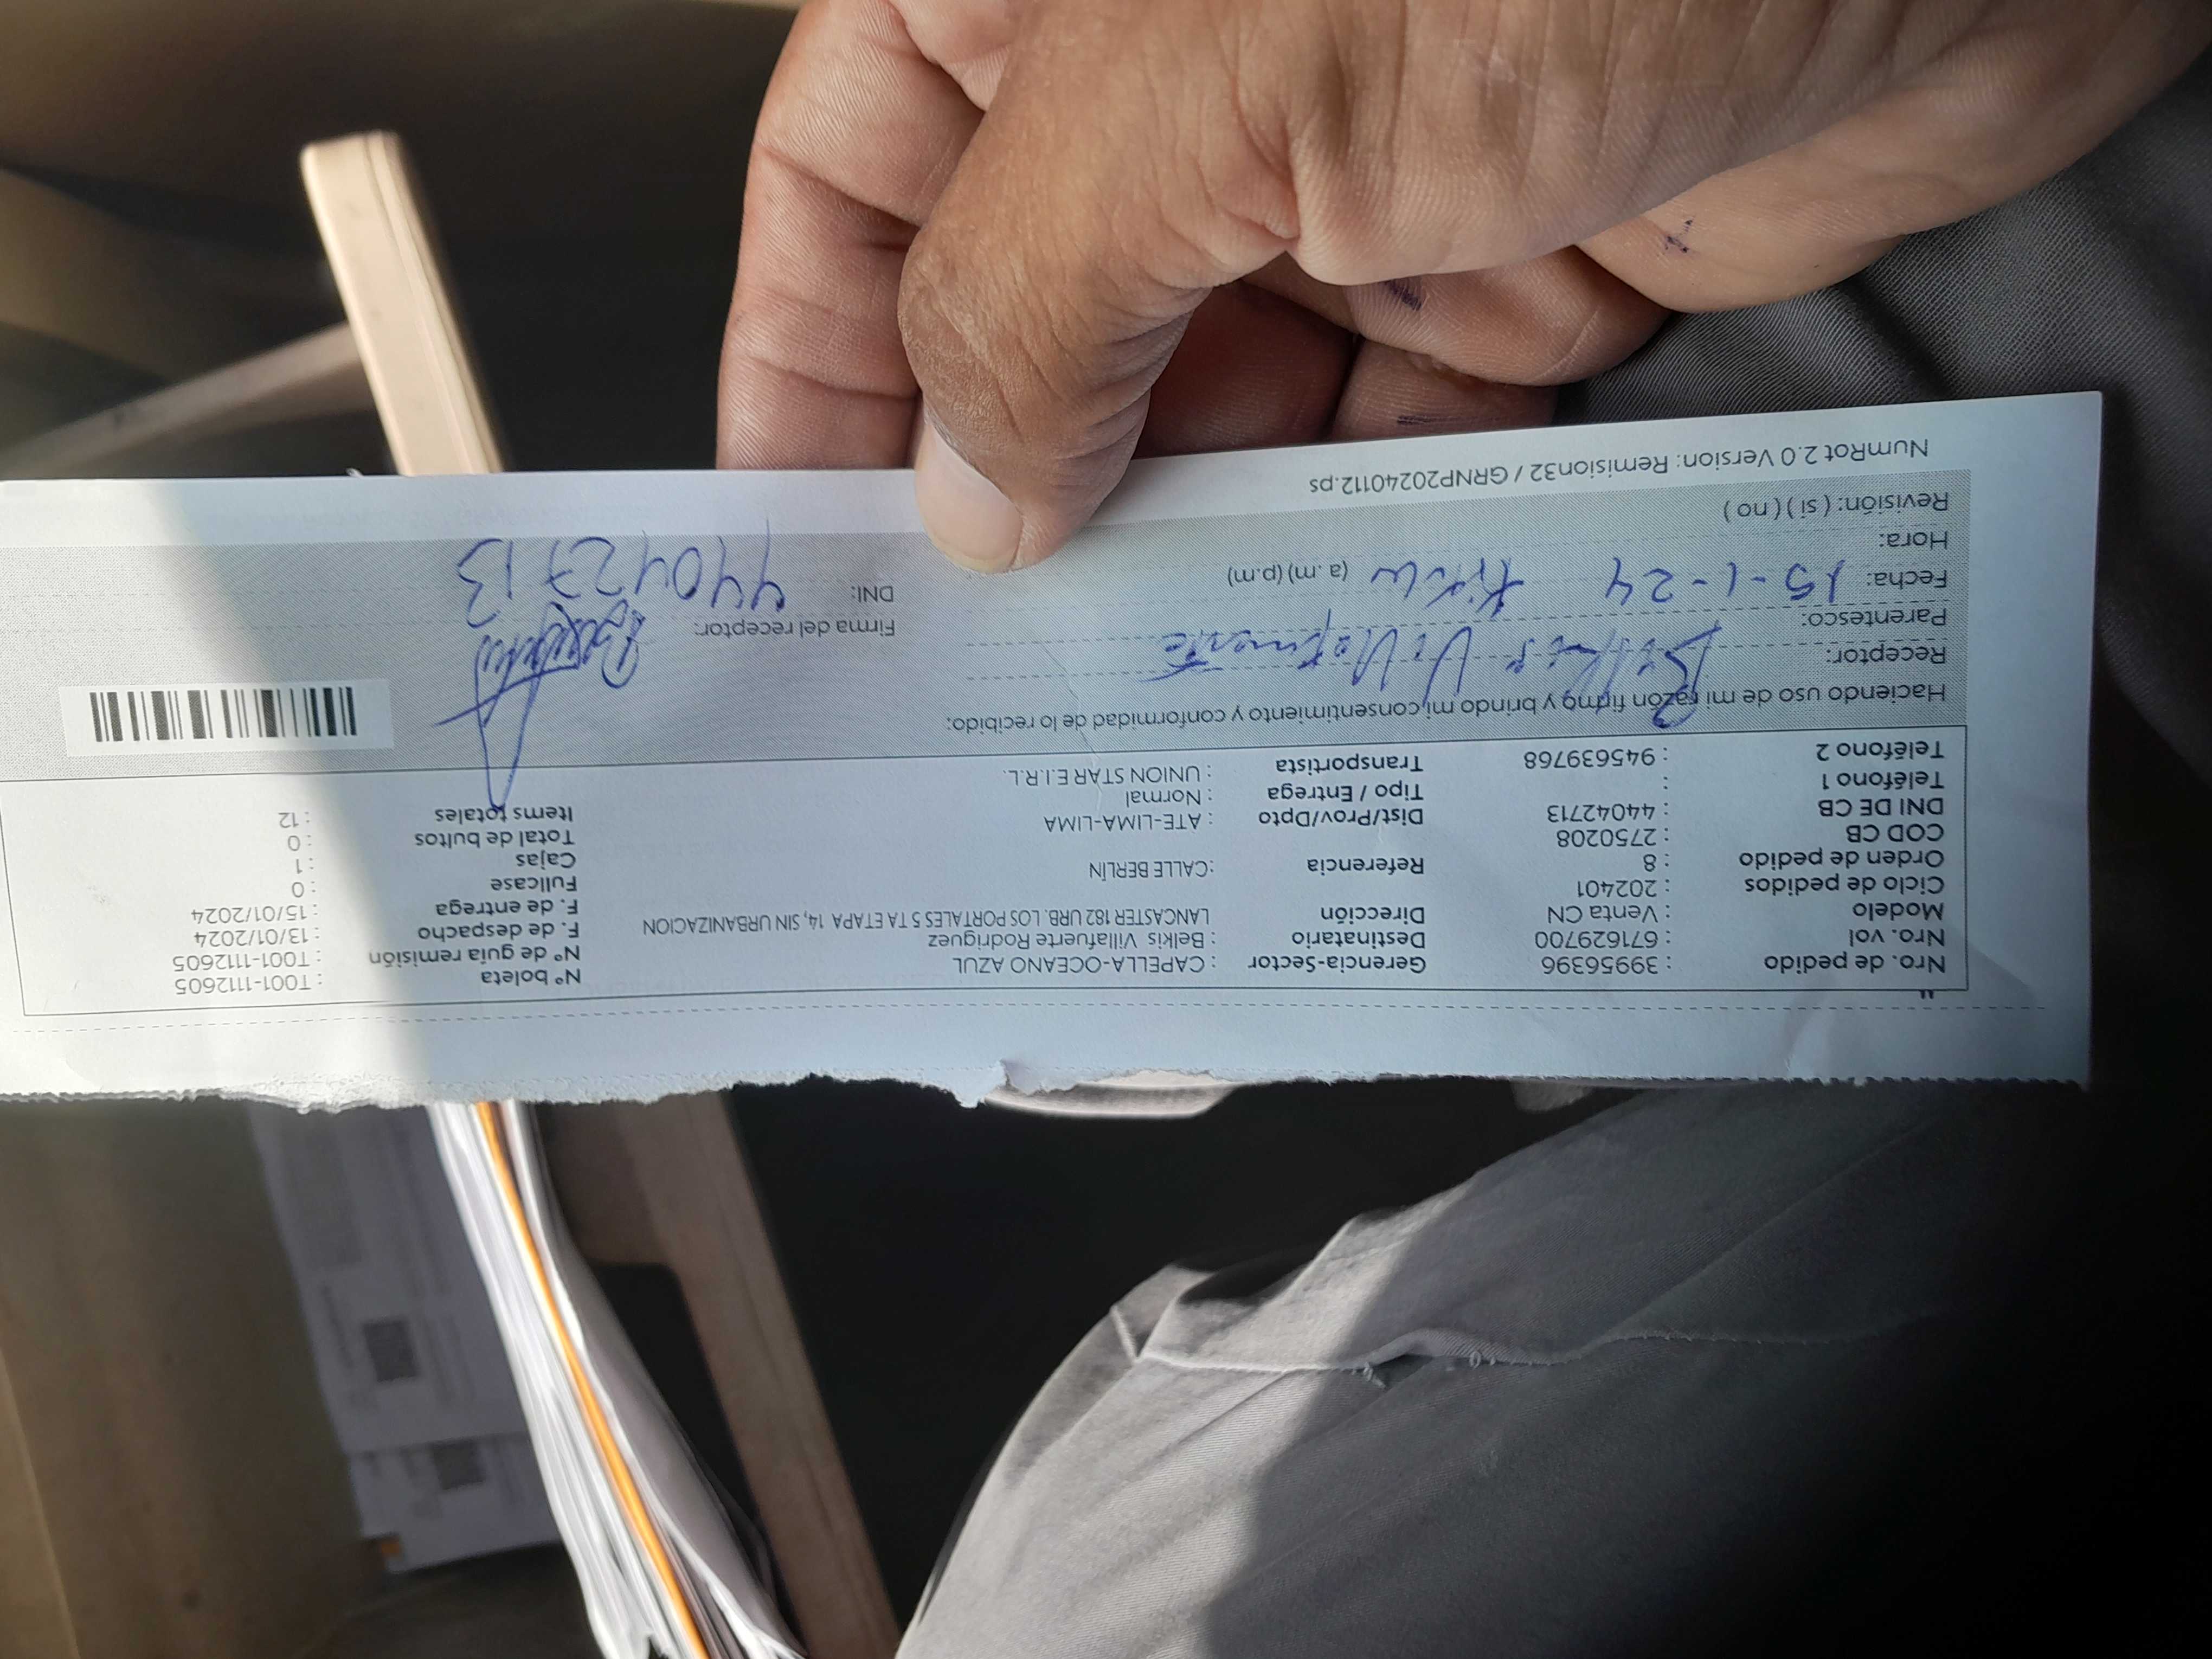 Nro. de pedido : 39956396 Gerencia-Sector : CAPELLA-OCEANO AZUL Nº boleta : T001-1112605
Nro. vol : 671629700 Destinatario : Belkis Villafuerte Rodriguez Nº de guía remisión : T001-1112605
Modelo : Venta CN Dirección LANCASTER 182 URB. LOS PORTALES 5 TA ETAPA 14, SIN URBANIZACION F. de despacho : 13/01/2024
Ciclo de pedidos : 202401 F. de entrega : 15/01/2024
Orden de pedido : 8 Referencia : CALLE BERLÍN Fullcase : 0
COD CB : 2750208 Cajas : 1
DNI DE CB : 44042713 Dist/Prov/Dpto : ATE-LIMA-LIMA Total de bultos : 0
Teléfono 1 : Tipo / Entrega : Normal Items totales : 12
Teléfono 2 : 945639768 Transportista : UNION STAR E.I.R.L.
Haciendo uso de mi razón firmo y brindo mi consentimiento y conformidad de lo recibido:
Receptor: Belkis Villafuerte
Parentesco: Firma del receptor:
Fecha: 15-1-24 DNI: 44042713
Hora: (a. m) (p.m)
Revisión: ( si ) ( no )
NumRot 2.0 Version: Remision32 / GRNP20240112.ps